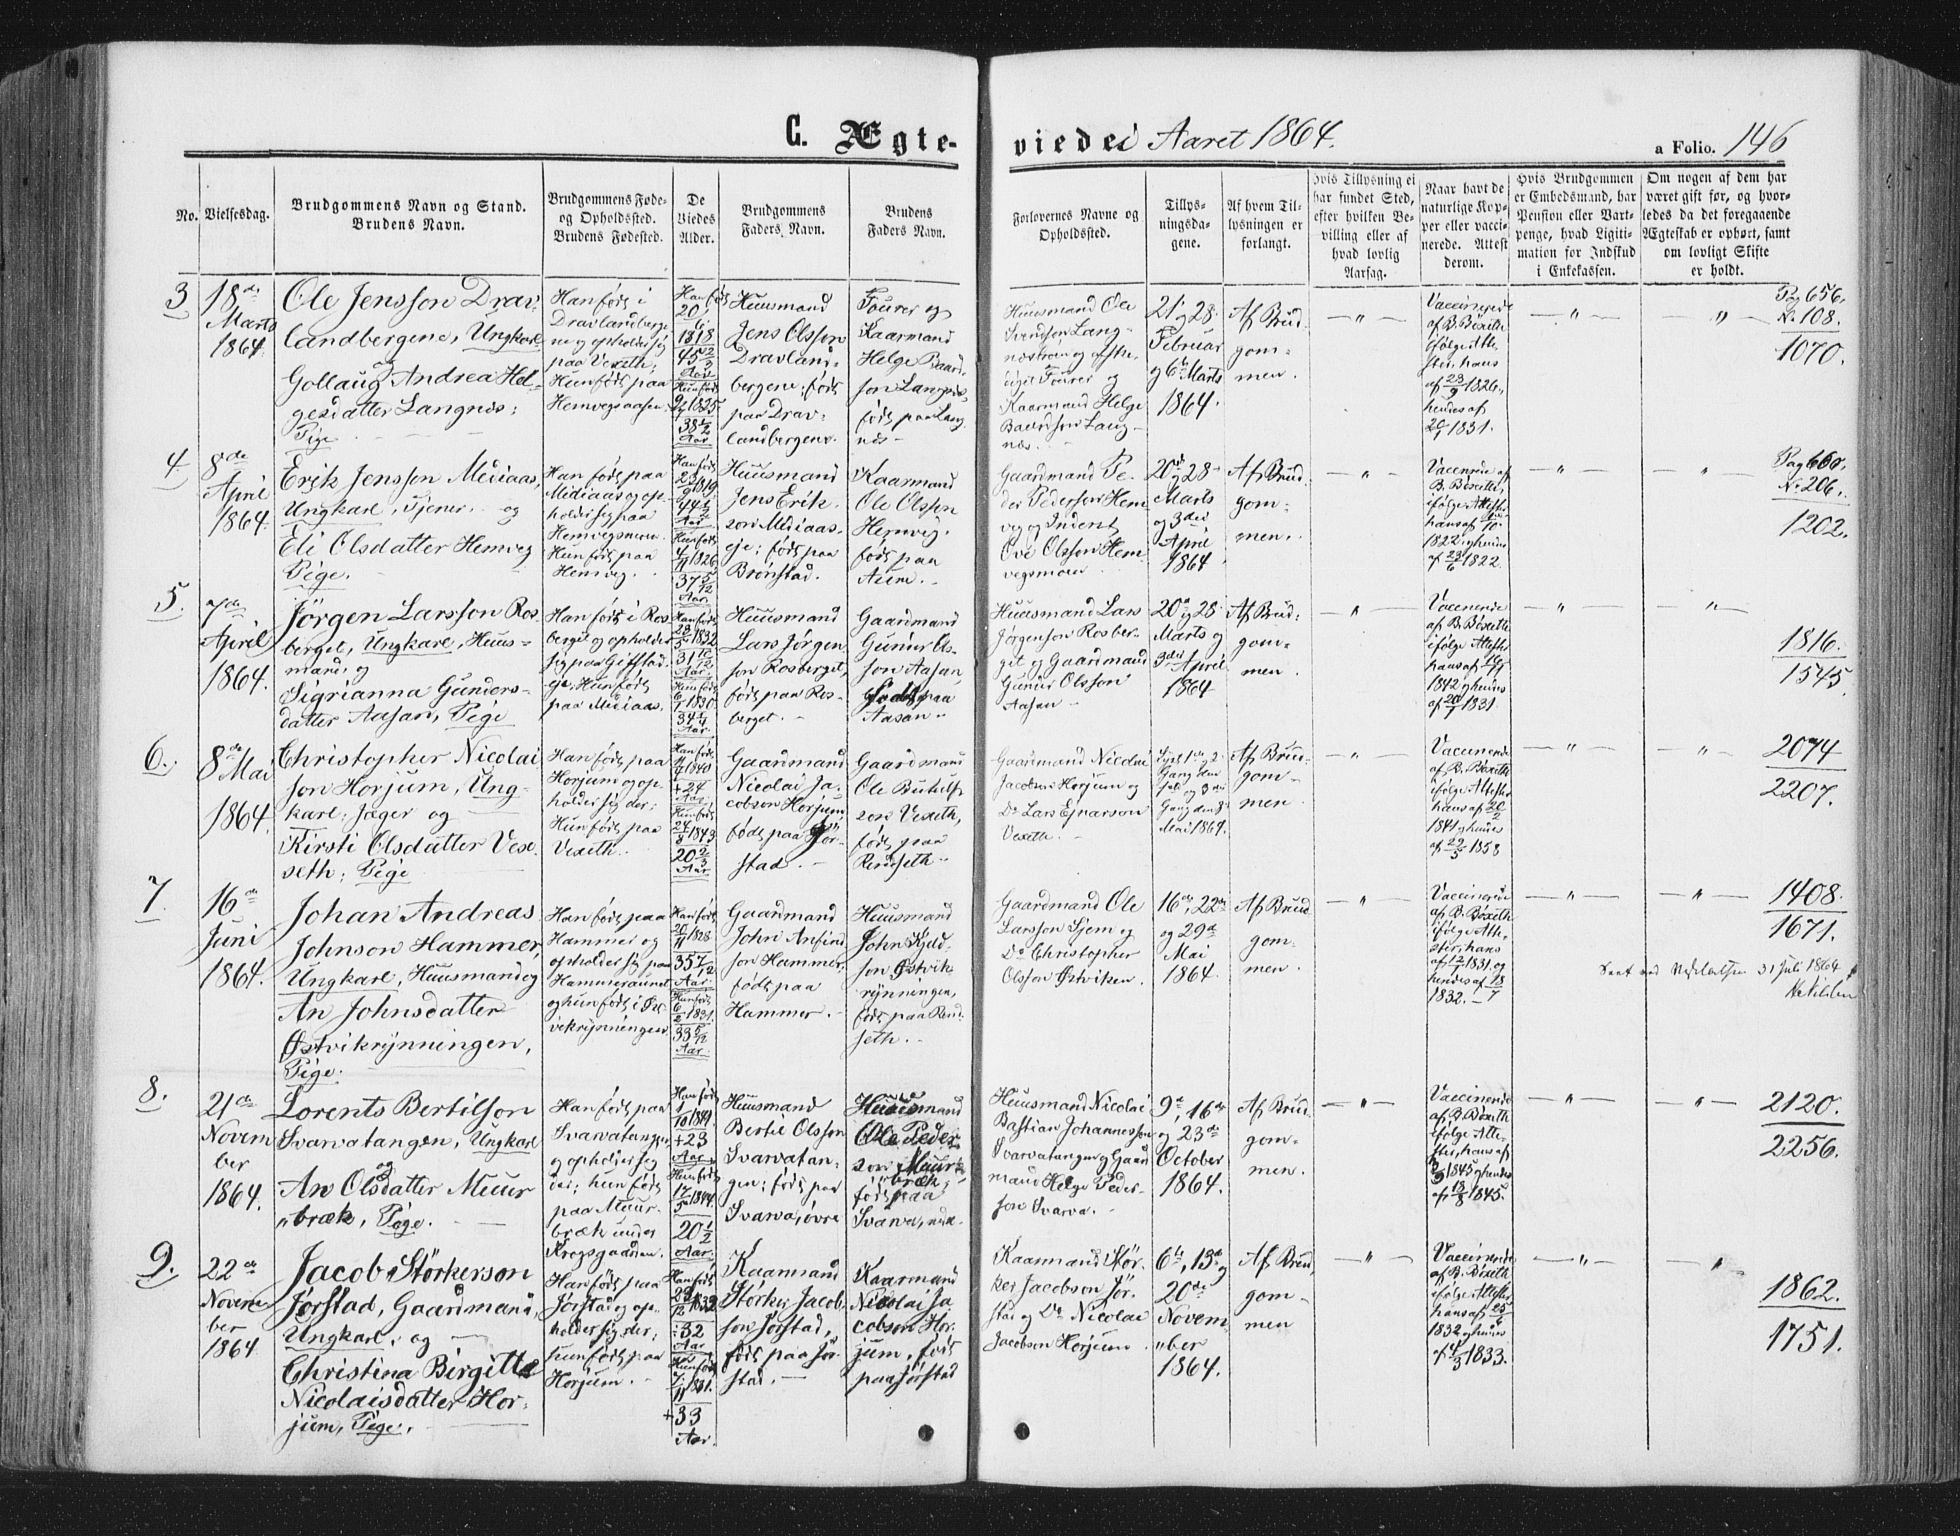 C. Ægte-
viede i Aaret 1864.
a Folio. 146
No.
Vielsesdag.
Brudgommens Navn og Stand.
Brudens Navn.
Brudgommens Føde-
og Opholdssted.
Brudens Fødested.
De
Viedes
Alder.
Brudgommens
Faders Navn.
Brudens
Faders Navn.
Forlovernes Navne og
Opholdssted.
Tillys-
ningsda-
gene.
Af hvem Til-
lysningen er
forlangt.
Hvis Tillysning ei
har fundet Sted,
efter hvilken Be-
villing eller af
hvad lovlig
Aarsag.
Naar havt de
naturlige Kop-
per eller vacci-
nerede. Attest
derom.
Hvis Brudgommen
er Embedsmand, har
Pension eller Vart-
penge, hvad Ligiti-
mation for Indskud
i Enkekassen.
Om nogen af dem har
været gift før, og hvor-
ledes da det foregaaende
Ægteskab er ophørt, samt
om lovligt Skifte
er holdt.
3
18de
Marts
1864.
Ole Jensson Drav-
landbergene, Ungkarl
Gollaug Andrea Hel-
gesdatter Langnes;
Pige
Han født i
Dravlandberge-
ne og opholder sig
paa Vexeth;
Hun født paa
Hemvegsaasen
Han født
20/6
1818
45 2/3
Aar
Hun født
1825
38 1/2
Aar
Huusmand
Jens Olsson
Dravland-
bergene; født
paa Drav-
landbergene.
Fourer og
Kaarmand
Helge Baard-
son Langnes,
født paa Lang-
nes
Huusmand Ole
Svendson Lang-
Fourer og
Kaarmand Helge
Baardson Lang-
næs.
21, og 28
Februar
og 6te Marts
1864.
Af Brud-
gom-
men.
Vaccinerede
af B. Bøxeth
ifølge Atte-
ster, hans
af 23/9 1826,
hendes af
20/1 1831.
Pag 656.
No 108.
1070.
4
8de
April
1864.
Erik Jensson Mediaas,
Ungkarl, Tjener. og
Eli Olsdatter Hemveg
Pige.
Han født paa
Mediaas og op-
holder sig paa
Hemvegsmoen
Hun født paa
Hemveg.
Han født
23/9 1819
44 1/2
Aar
Hun født
4/11 1826
37 5/12
Aar
Huusmand
Jens Erik-
son Mediaas-
eje; født paa
Brønstad.
Kaarmand
Ole Olsson
Hemveg.
født paa
Aum.
Gaardmand Pe-
der Pederson Hem-
veg og Inderst
Ove Olsson Hem-
vegsmoen
20de og 28
Marts
og 3die
April
1864
Af Brud-
gom-
men.
Vaccinerede af
B. Bøxeth,
ifølge Attester
hans af
1822. og hendes
af 23/6 1822.
Pag 660.
No 206.
1202.
5.
7de
April
1864.
Jörgen Larsson Ros-
berget, Ungkarl, Huus-
mand; og
Sigrianna Gunders-
datter Aasan, Pige
Han født i Ros-
berget og opholder
sig paa Gifstad-
eje, Hun født
paa Mediaas.
Han født
1832
31 11/12
Aar
Hun født
6/1 1830
34 1/4
Aar
Huusmand
Lars Jörgen-
son Rosberget,
født paa Ros-
berget.
Gaardmand
Gunder Ols-
son Aasan,
født paa
Aasan
Huusmand Lars
Jørgenson Rosber-
get og Gaardmand
Gunder Olsson
Aasan
20de og 28
Marts og
3die April
1864
Af Brud-
gom-
men.
Vaccinerede
af B. Bøxeth
ifølge Attester
hans af
1842 og hendes
af 20/7 1831.
1816.
1545.
6.
8de Mai
1864.
Christopher Nicolai
son Horjum, Ung-
karl; Jæger og
Kirsti Olsdatter Vex-
seth; Pige
Han født paa
Horjum og op-
holder sig der;
Hun født paa
Vexeth.
Han født
1840
+24
Aar
Hun født
24/8 1843
20 2/3
Aar
Gaardmand
Nicolai Ja-
cobson Horjum,
født paa Jör-
stad.
Gaardmand
Ole Bertils-
son Vexeth,
født paa
Rendseth.
Gaardmand Nicolai
Jacobson Horjum og
Do Lars Ejnarson
Vexeth.
Gang den
og 3die
Gang den 8de
Mai 1864.
Af Brud-
gom-
men.
Vaccinerede
af B. Bøxeth
ifølge Attester
hans af 20/2
1841 og hendes
af 29/5 1858
2074
2207.
7.
16de
Juni
1864.
Johan Andreas
Johnson Hammer,
Ungkarl, Huusmand og
An Johnsdatter
Østvikrynningen,
Pige.
Han født paa
Hammer og
opholder sig paa
Hammeraunet
og hun født i Øst-
vikrynningen
Han født
20/11 1828
35 7/12
Aar
Hun født
6/2 1831.
33 5/12
Aar
Gaardmand
John Anfind-
son Hammer,
født paa
Hammer.
Huusmand
John Kjeld-
son Østvik-
rynningen,
født paa Rend-
seth.
Gaardmand Ole
Larsson Sjem og
Do Christopher
Olsson Østviken.
16de, 22de
og 29de
Mai
1864.
Af Brud-
gom-
men.
Vaccinerede
af B. Bøxeth
ifølge Atte-
ster, hans
af 12/7 1831 og
hendes af 18/7
1832.
1408.
1671.
31 Juli 1864
8.
21de
Novem
ber
1864.
Lorents Bertilson
Svarvatangen, Ungkarl
og
An Olsdatter Muur
bræk, Pige.
Han født paa
Svarvatangen
og opholder sig
der; hun født
paa Muur-
bræk under
Krogsgaarden.
Han født
1/10 1841
+23
Aar
Hun født
17/5 1844
20 1/2
Aar
Huusmand
Bertil Olsson
Svarvatan-
gen; født paa
Svarva, övre
Huusmand
Ole Peder-
son Muur-
bræk,
født paa
Svarva,
Huusmand Nicolai
Bastian Johannesson
Svarvatangen og Gaard-
mand Helge Peder-
son Svarva.
9de, 16de
og 23de
October
1864.
Af Brud-
gom-
men.
Vaccinerede
af B. Bøxeth
ifølge Atte-
ster, hans af
1845 og hendes
af 18/8 1845.
2120.
2256.
9.
22de
Novem
ber
1864
Jacob Störkerson
Jørstad, Gaardmand,
Ungkarl; og
Christina Birgitte
Nicolaisdatter Hor-
jum, Pige.
Han født paa
Jørstad og op-
holder sig der;
hun født paa
Horjum.
Han født
1832
÷32
Aar
Hun født
1831.
+33
Aar.
Kaarmand
Störker Jacob-
son Jørstad,
født paa Jør-
stad.
Kaarmand
Nicolai Ja-
cobson Hor-
jum, født
paa Jørstad
Kaarmand Stör-
ker Jacobson Jør-
stad og Do Nicolai
Jacobson Horjum
6te, 13de og
20de
Novem-
ber
1864.
Af Brud-
gom-
men
Vaccinerede
af B. Bøxeth
ifølge Attester
hans af 25/6
1832 og hendes
af 4/3 1833.
1862.
1751.